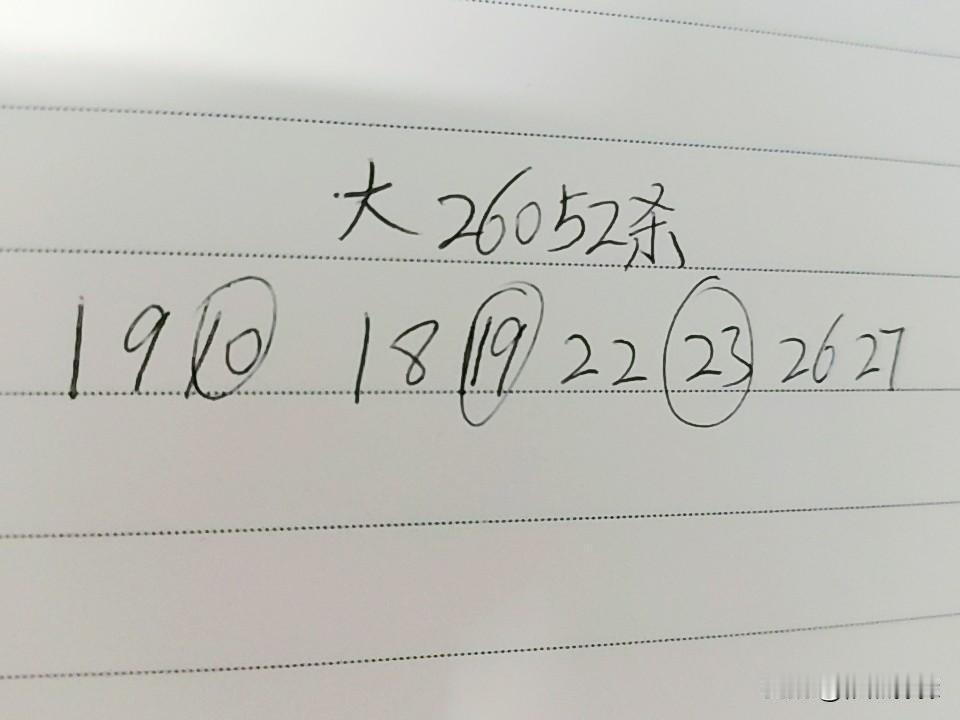 大26052杀
1 9 10 18 19 22 23 26 27